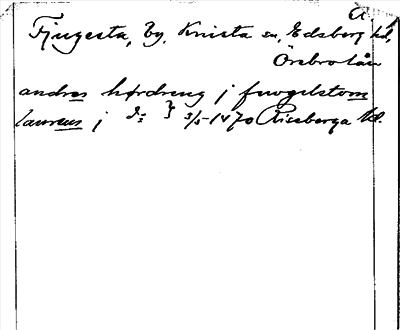 A.
Fjugesta, by, Knista sn, Edsberg hd,
Örebro län
andres hørdreng j fwgelstom
laurens j d:o } 3/5-1470 Riseberga kl.